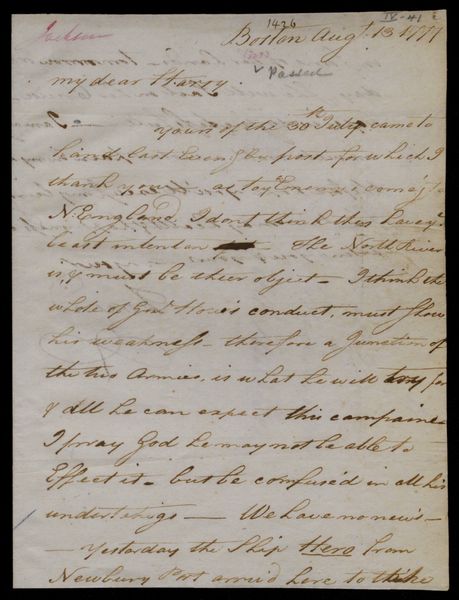 1426
IV-41
Jackson
Boston Augt. 13 1777
Passed
my dear Harry.
I — yours of the 30th July came to
hand last Eveng by post - for which I
thank you - as to ye Enemies comeg to
N England, I dont think they have ye
least intention - The North River
is & must be their object - I think the
whole of Genl Howe's conduct, must show
his weakness - therefore a Junction of
the two Armies, is what he will try for
& all he can expect this campaine
I pray God he may not be able to
Effect it - but be confused in all his
undertakigs — We have no news -
- Yesterday the Ship Hero from
Newbury Port arriv'd here to take